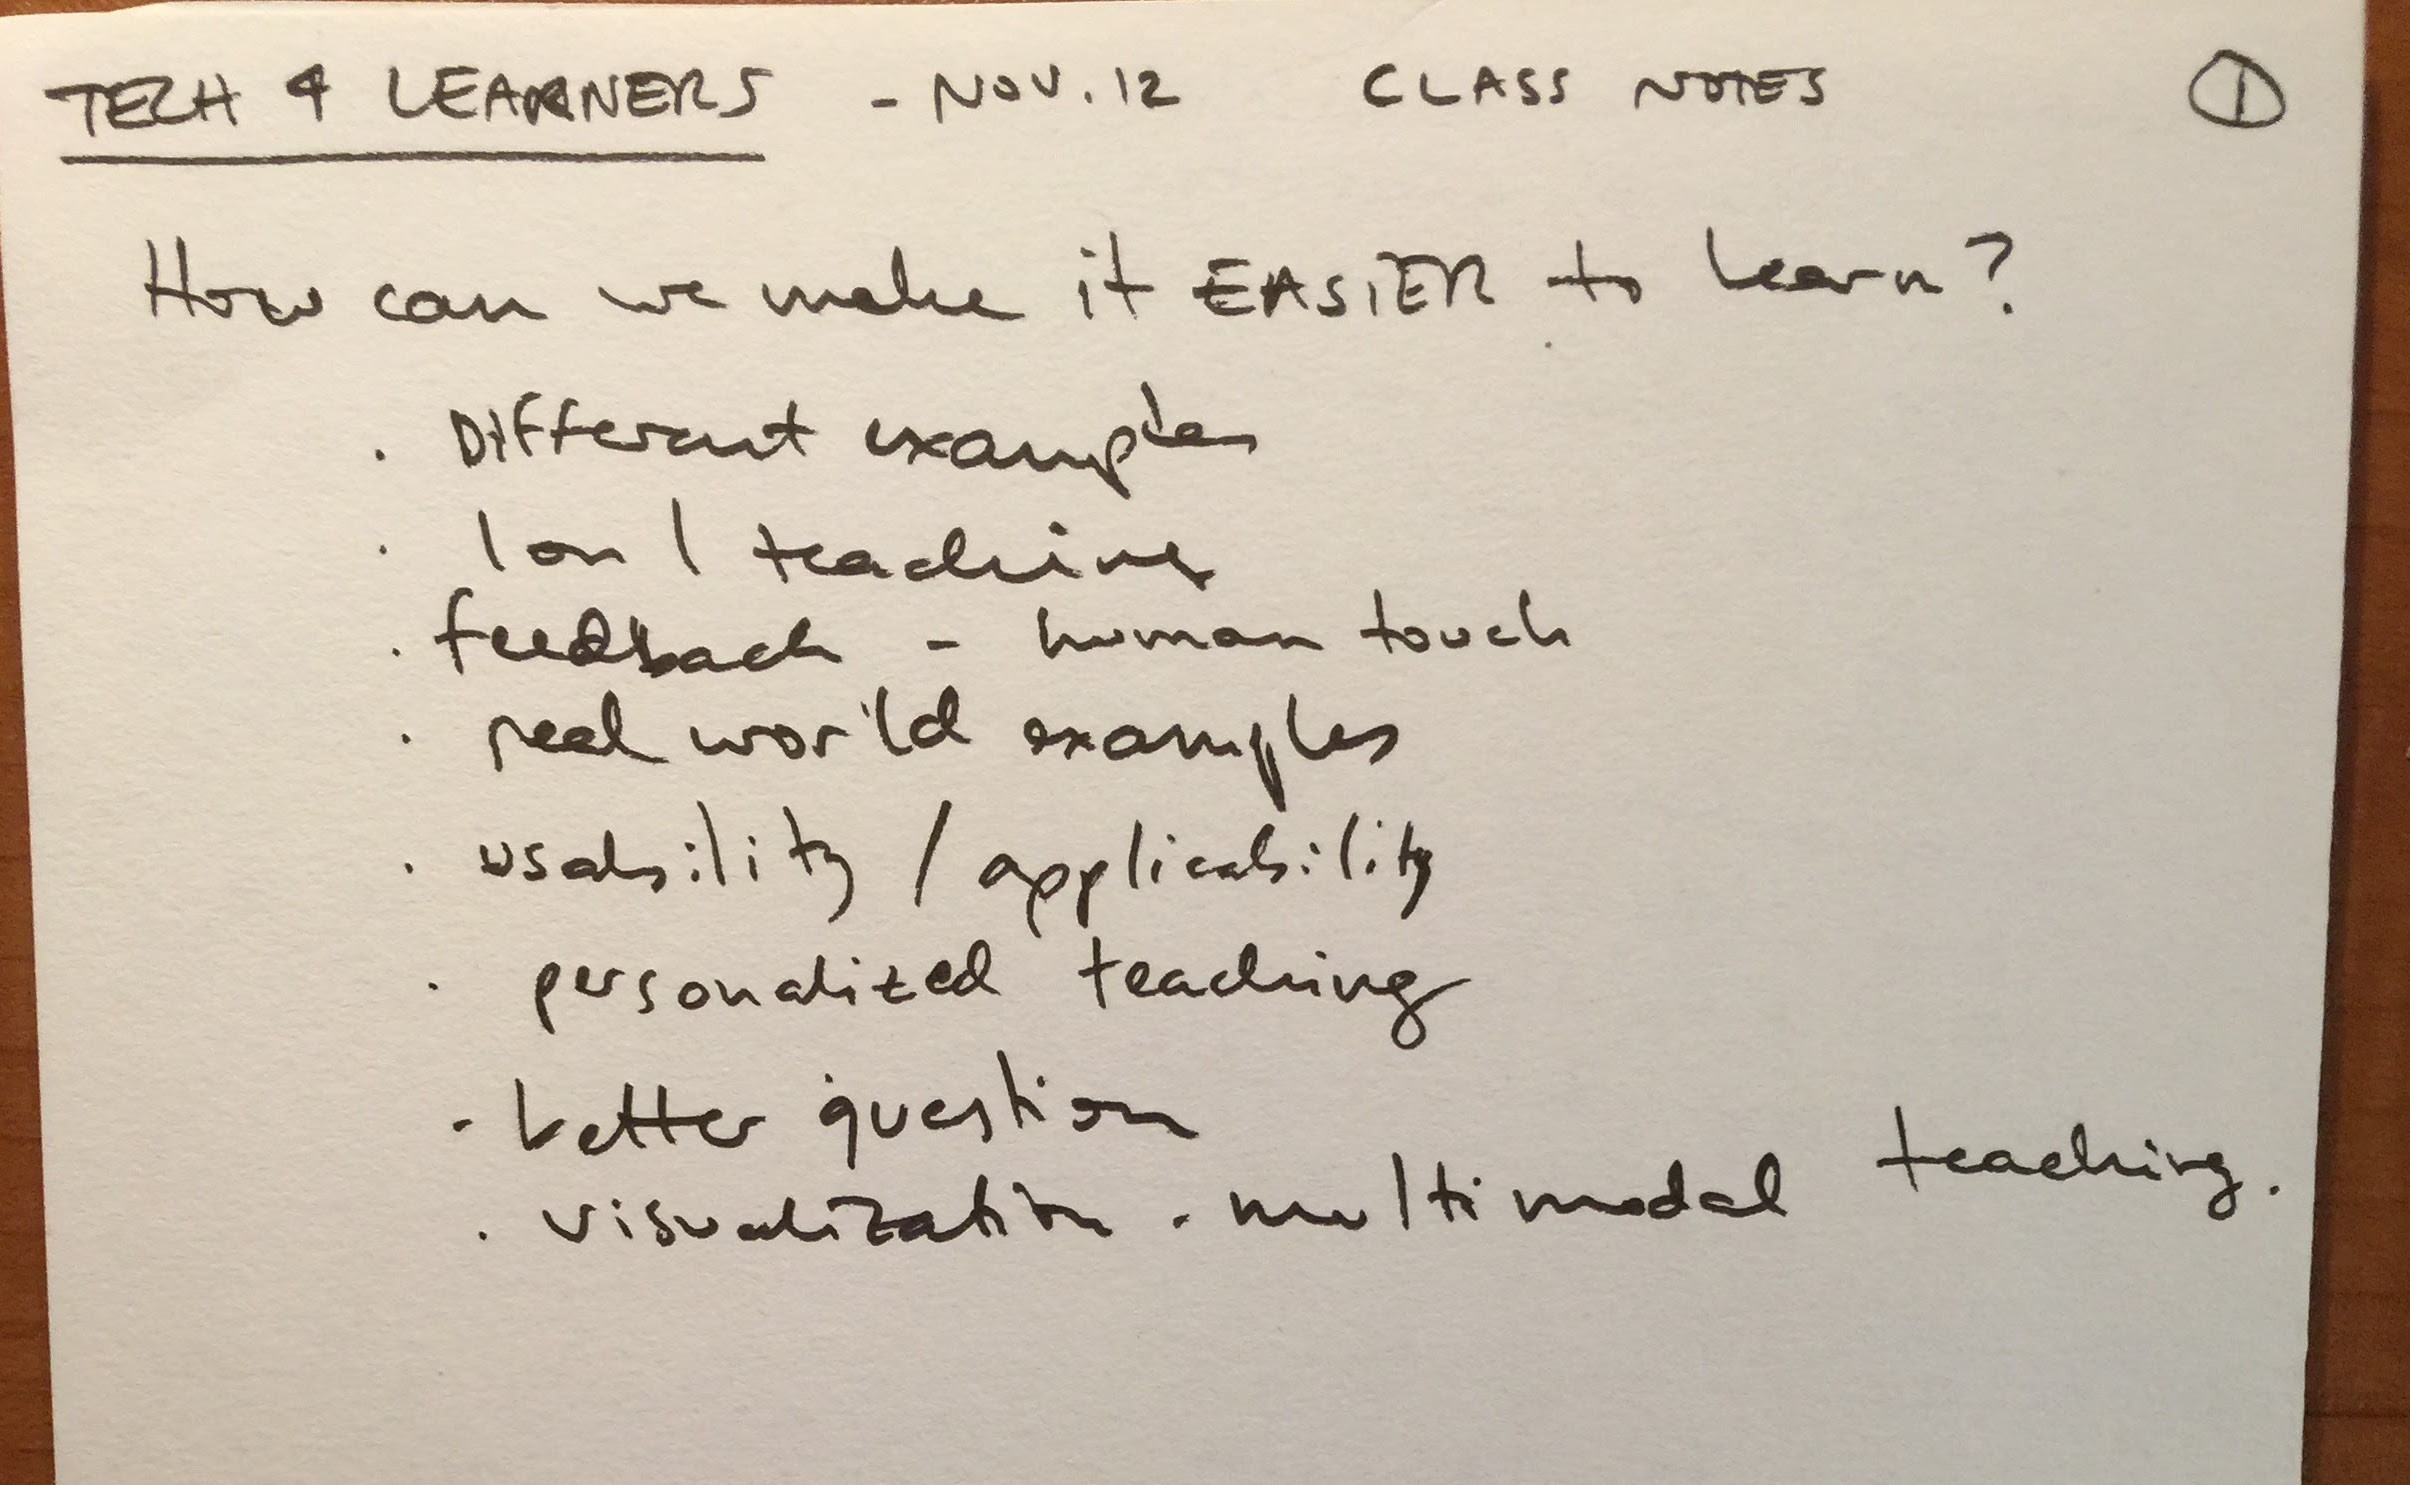 TECH & LEARNERS - NOV. 12 CLASS NOTES 1
How can we make it EASIER to learn?
· Different examples
· 1 on 1 teaching
· feedback - human touch
· real world examples
· usability / applicability
· personalized teaching
· better question
· visualization . multimodal teaching.